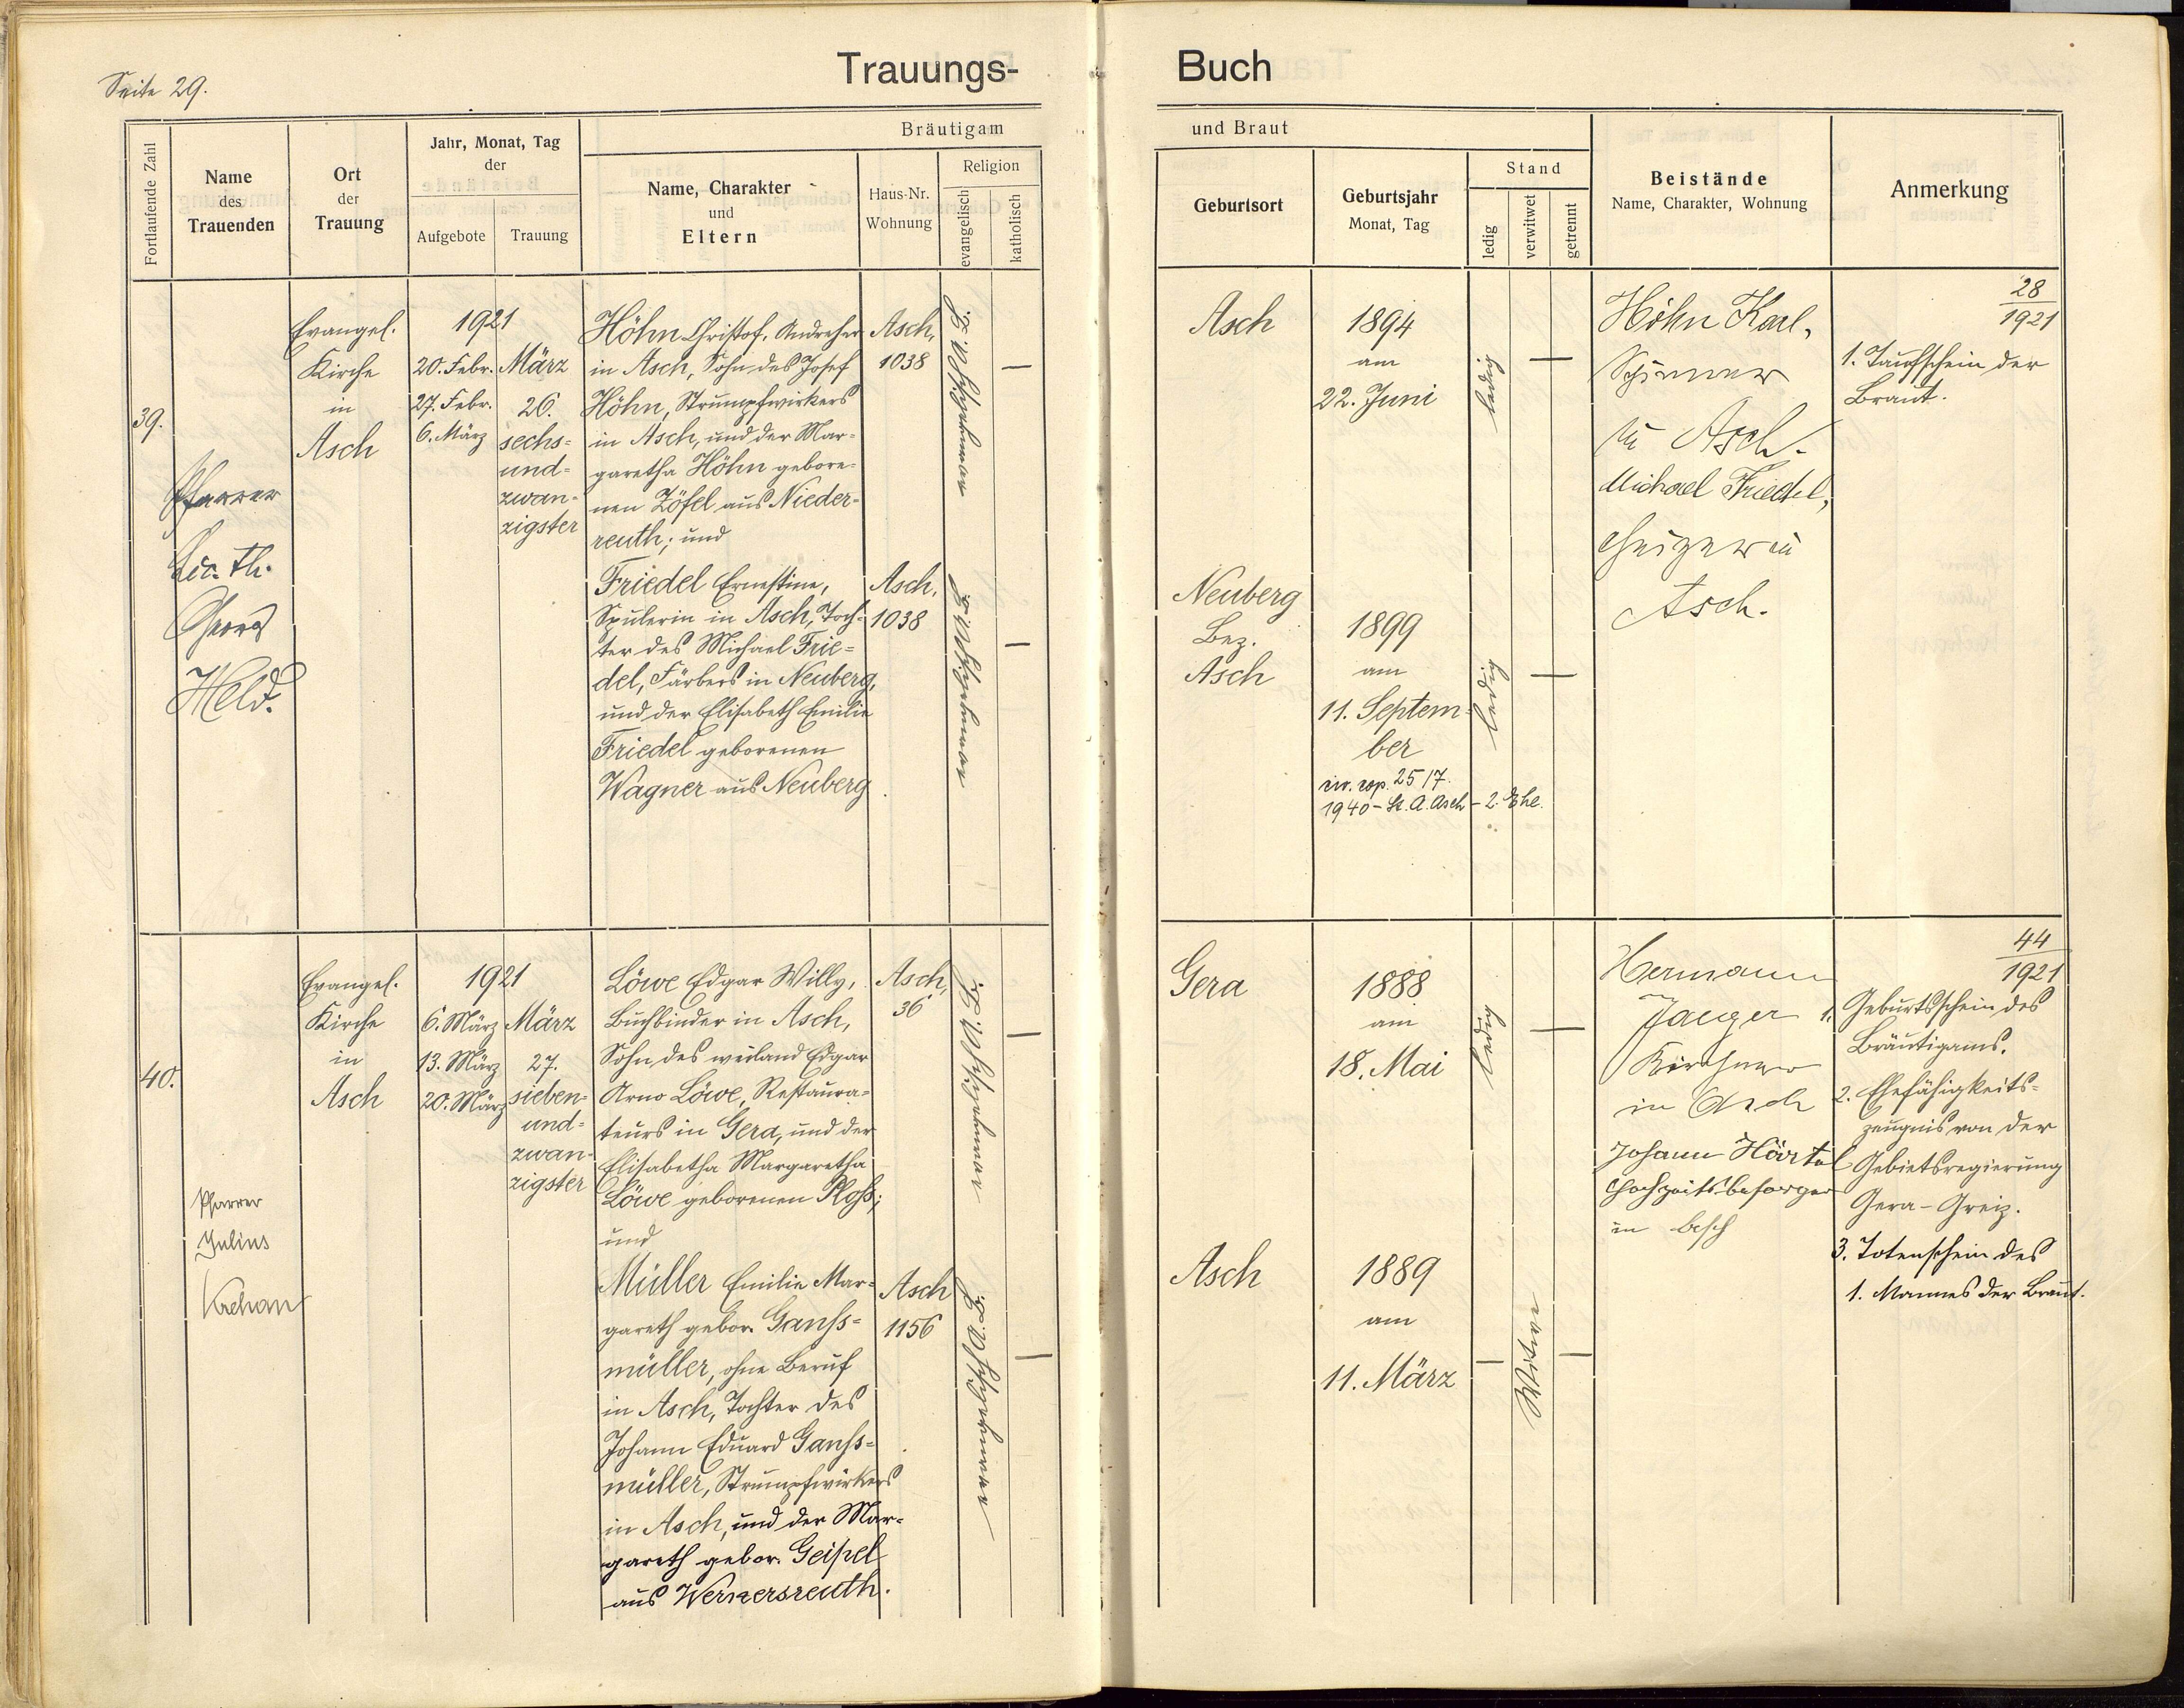 Seite 29.
Trauungs-
Buch
Fortlaufende Zahl
Name
des
Trauenden
Ort
der
Trauung
Jahr, Monat, Tag
der
Aufgebote
Trauung
Bräutigam
Name, Charakter
und
Eltern
Haus-Nr.
Wohnung
Religion
evangelisch
katholisch
und Braut
Geburtsort
Geburtsjahr
Monat, Tag
Stand
ledig
verwitwet
getrennt
Beistände
Name, Charakter, Wohnung
Anmerkung
39.
Pfarrer
Lic. th.
Held.
Evangel.
Kirche
in
Asch
1921
20. Febr.
27. Febr.
6. März
März
26.
sechs-
und-
zwan-
zigster
Höhn Christof, Andreher
in Asch, Sohn des Josef
Höhn, Strumpfwirkers
in Asch, und der Mar-
garetha Höhn gebore-
nen Zöfel aus Nieder-
reuth; und
Asch,
1038
—
Friedel Ernestine,
Spulerin in Asch, Toch-
ter des Michael Frie-
del, Färbers in Neuberg,
und der Elisabeth Emilie
Friedel geborenen
Wagner aus Neuberg
Asch,
1038
—
Asch
1894
am
22. Juni
ledig
—
Neuberg
Bez.
Asch
1899
am
11. Septem-
ber
25/7.
1940 - St. A. Asch - 2. Ehe.
ledig
—
Höhn Karl,
in Asch.
Michael Friedel,
Heizer in
Asch.
28
1921
1. Taufschein der
Braut.
40.
Pfarrer
Julius
Krehan
Evangel.
Kirche
in
Asch
1921
6. März
13. März
20. März
März
27.
sieben-
und-
zwan-
zigster
Löwe Edgar Willy,
Buchbinder in Asch,
Sohn des weiland Edgar
Arno Löwe, Restaura-
teurs in Gera, und der
Elisabetha Margaretha
Löwe geborenen Ploß;
und
Asch,
36
—
Müller Emilie Mar-
gareth gebor. Ganß-
müller, ohne Beruf
in Asch, Tochter des
Johann Eduard Ganß-
müller, Strumpfwirkers
in Asch, und der Mar-
gareth gebor. Geipel
aus Wernersreuth.
Asch
1156
—
Gera
1888
am
18. Mai
ledig
—
Asch
1889
am
11. März
—
Witwe
—
Hermann
Jaeger
Kirchner
in Asch
Johann Härtel
Hochzeitsbesorger
in Asch
44
1921
1. Geburtsschein des
Bräutigams.
2. Ehefähigkeits-
zeugnis von der
Gebietsregierung
Gera - Greiz.
3. Totenschein des
1. Mannes der Braut.